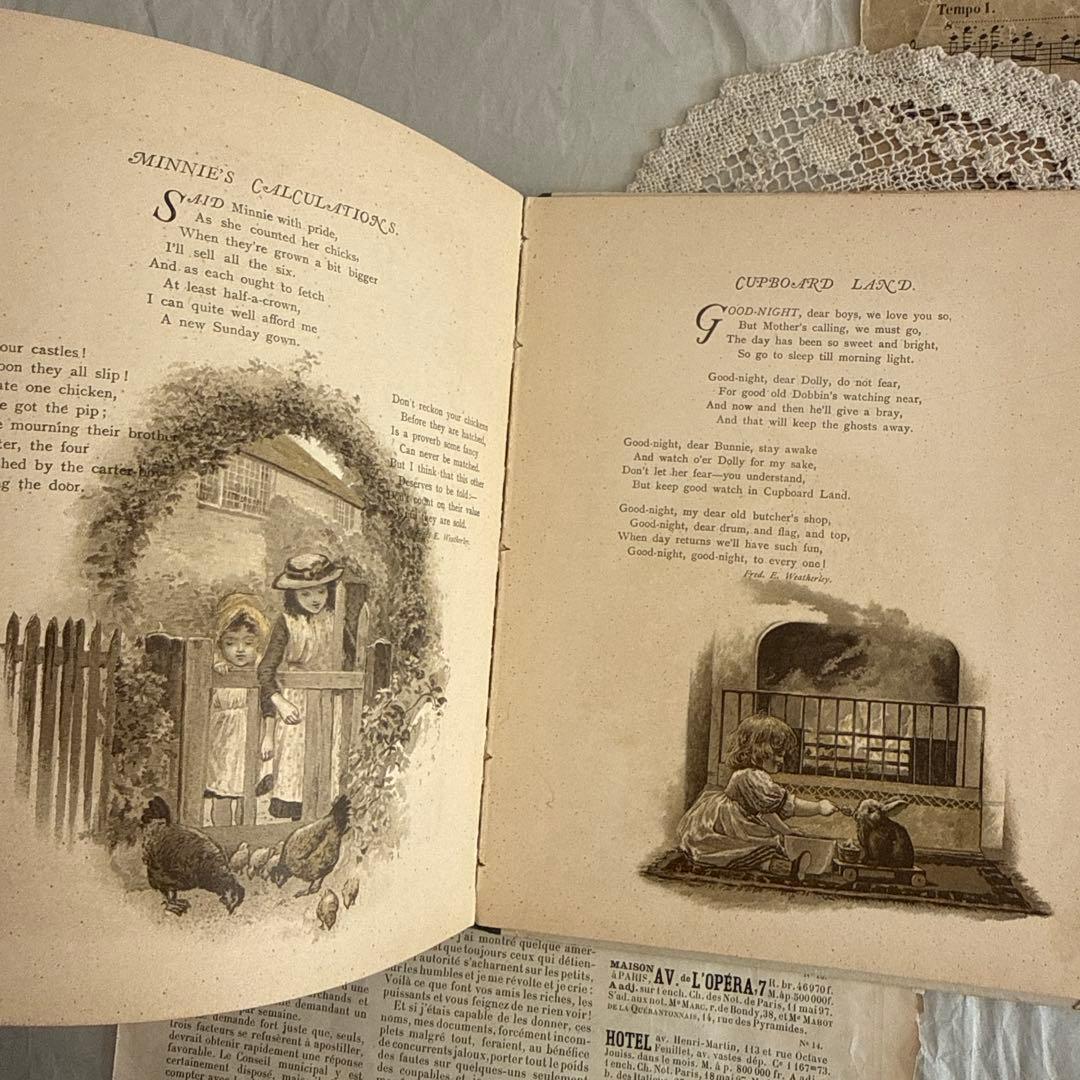 MINNIE'S CALCULATIONS.
SAID Minnie with pride,
As she counted her chicks,
When they're grown a bit bigger
I'll sell all the six.
And as each ought to fetch
At least half-a-crown,
I can quite well afford me
A new Sunday gown.
our castles!
they all slip!
one chicken,
got the pip;
mourning their brother
the four
by the carter
the door.
Don't reckon your chickens
Before they are hatched,
Is a proverb some fancy
Can never be matched.
But I think that this other
Deserves to be told:—
Don't count on their value
they are sold.
E. Weatherley.
CUPBOARD LAND.
GOOD-NIGHT, dear boys, we love you so,
But Mother's calling, we must go,
The day has been so sweet and bright,
So go to sleep till morning light.
Good-night, dear Dolly, do not fear,
For good old Dobbin's watching near,
And now and then he'll give a bray,
And that will keep the ghosts away.
Good-night, dear Bunnie, stay awake
And watch o'er Dolly for my sake,
Don't let her fear—you understand,
But keep good watch in Cupboard Land.
Good-night, my dear old butcher's shop,
Good-night, dear drum, and flag, and top,
When day returns we'll have such fun,
Good-night, good-night, to every one!
Fred. E. Weatherley.
Tempo I.
8
d'une
marchands et
par semaine.
demande fort juste que, seuls,
trois facteurs se refusèrent à apostiller,
devrait obtenir rapidement une réponse
favorable. Le Conseil municipal y est
certainement disposé, mais
compter avec
j'ai montré quelque amer-
que toujours ceux qui détien-
autorité s'acharnent sur les petits,
sur les humbles et je me révolte et je crie:
Voilà ce que font vos amis les riches, les
puissants et vous feignez de ne rien voir!
Et si j'étais capable de les donner, ces
noms, mes documents, forcément incom-
plets malgré tout, feraient, au bénéfice
de concurrents jaloux, porter tout le poids
des fautes sur quelques-uns seulement
des coupables et
MAISON AV. de L'OPÉRA, 7 R. br. 46970 f.
à PARIS, M. à p. 500 000f.
A adj. sur 1 ench. Ch. des Not. de Paris, 11 mai 97.
S'ad. aux not. Me MARC, r. de Bondy, 38, et Me MABOT
DE LA QUÉRANTONNAIS, 14, rue des Pyramides.
N° 14.
HOTEL av. Henri-Martin, 113 et rue Octave
Feuillet, av. vastes dép. Ce 1167m73.
Jouiss. dans le mois. M. à p. 800 000 fr. A adj.
1 ench. Ch. Not. Paris, 18 mai 97.
b. des